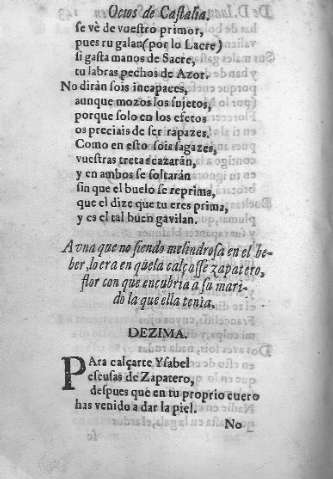 Ocios de Castalia.
se vè de vuestro primor,
pues ru galan (por lo Lacre)
si gasta manos de Sacre,
tu labras pechos de Azor.
No dirán sois incapaces,
aunque mozos los sujetos,
porque solo en los efetos
os preciais de ser rapazes.
Como en esto sois sagazes,
vuestras tretas cazarán,
y en ambos se soltarán
sin que el buelo se reprima,
que el dize que tu eres prima,
y es el tal buen gavilan.
A vna que no siendo melindrosa en el be-
ber, lo era en q̃ẽla calçasse zapatero,
flor con que encubria a su mari-
do la que ella tenia.
DEZIMA.
PAra calçarte Ysabel
escusas de Zapatero,
despues que en tu proprio cuero
has venido a dar la piel.
No